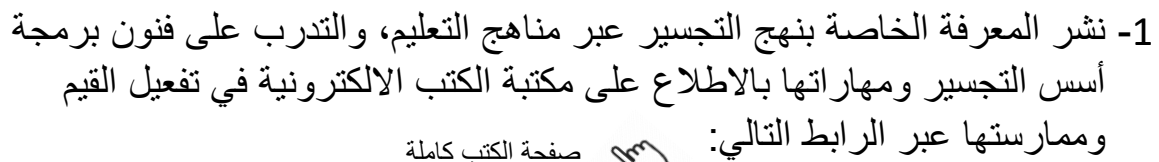 1- نشر المعرفة الخاصة بنهج التجسير عبر مناهج التعليم، والتدرب على فنون برمجة
أسس التجسير ومهاراتها بالاطلاع على مكتبة الكتب الالكترونية في تفعيل القيم
وممارستها عبر الرابط التالي: صفحة الكتب كاملة